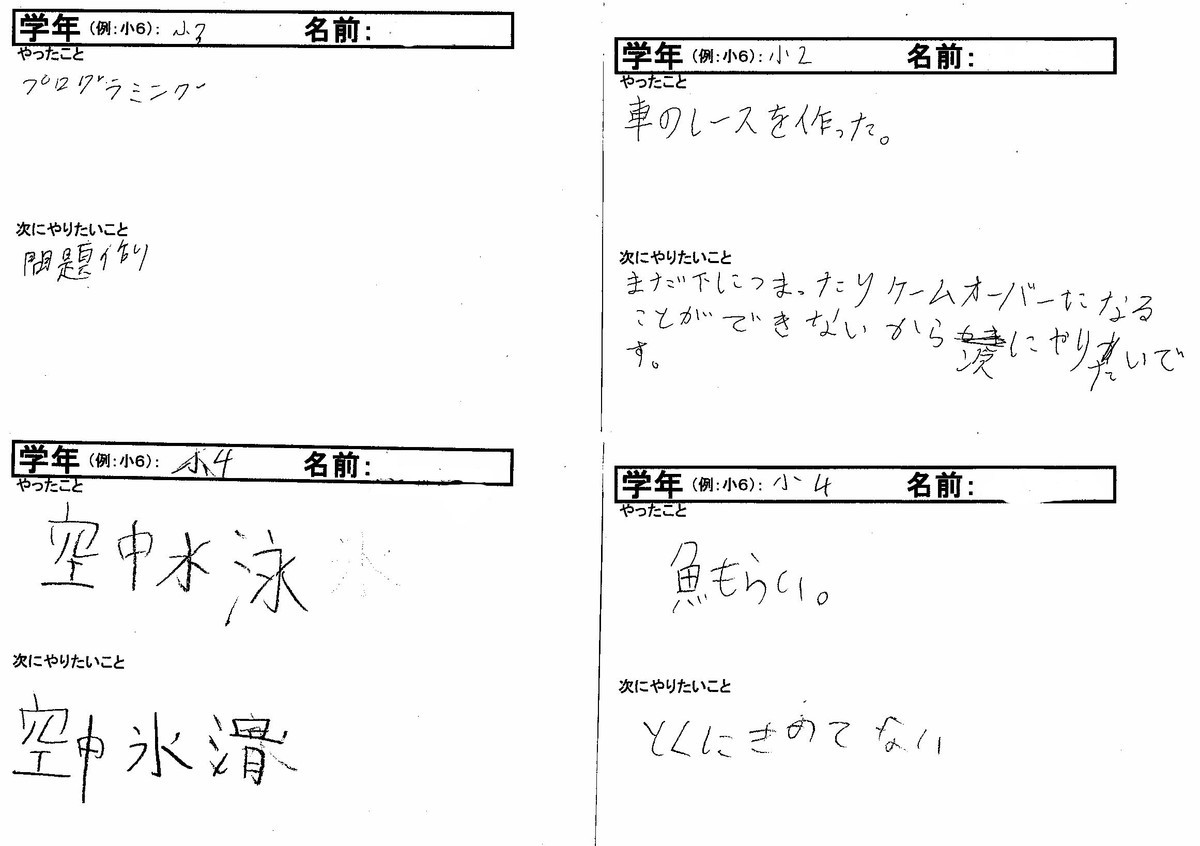 学年(例:小6): 小3 名前:
やったこと
プログラミング
次にやりたいこと
問題作り
学年(例:小6): 小2 名前:
やったこと
車のレースを作った。
次にやりたいこと
まだ下につまったりゲームオーバーになる
ことができないから次にやりたいで
す。
学年(例:小6): 小4 名前:
やったこと
空中水泳
次にやりたいこと
空中氷滑
学年(例:小6): 小4 名前:
やったこと
魚もらい。
次にやりたいこと
とくにきめてない